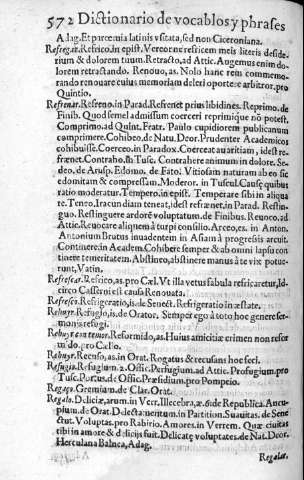 572 Dictionario de vocablos y phrases
Adag. Et parœmia latinis vsitata, sed non Ciceroniana.
Refregar. Refrico, in epist. Vereor ne refricem meis literis deside-
rium & dolorem tuum. Retracto, ad Attic. Augemus enim do-
lorem retractando. Renouo, as. Nolo hanc rem commemo-
rando renouare cuius memoriam deleri oportere arbitror, pro
Quintio.
Refrenar. Refreno. in Parad. Refrenet prius libidines. Reprimo. de
Finib. Quod semel admissum coerceri reprimique nō potest.
Comprimo. ad Quint. Fratr. Paulo cupidiorem publicanum
comprimere. Cohibeo. de Natu. Deor. Prudenter Academicos
cohibuisse. Coerceo. in Paradox. Coerceat auaritiam, id est re-
frænet. Contraho. 4. Tusc. Contrahere animum in dolore. Se-
do. de Arusp. Edomo. de Fato. Vitiosam naturam ab eo sic
edomitam & compressam. Moderor. in Tuscul. Causę quibus
ratio moderatur. Tempero. in epist. Temperare sibi in aliqua
re. Teneo. Iracundiam teneat, id est refrænet, in Parad. Restin-
guo. Restinguere ardorē voluptatum. de Finibus. Reuoco. ad
Attic. Reuocare aliquem à turpi consilio. Arceo, es. in Anton.
Antonium Brutus inuadentem in Asiam à progressis arcuit.
Continere, in Academ. Cohibere semper & ab omni lapsu con
tinere temeritatem. Abstineo, abstinere manus à te vix potue-
runt, Vatin.
Refrescar. Refrico, as. pro Cæl. Vt illa vetus fabula refricaretur, Id-
circo Cassero is est causa Renouata.
Refresco. Refrigeratio, is. de Senect. Refrigeratio in æstate.
Rehuyr. Refugio, is. de Orator. Semper ego à toto hoc genere ser-
monis refugi.
Rehuyr con temor. Reformido, as. Huius amicitiæ crimen non refor
mido. pro Cælio.
Rehuyr. Recuso, as. in Orat. Rogatus & recusans hoc feci.
Refugio. Refugium. 2. Offic. Perfugium. ad Attic. Profugium. pro
Tusc. Portus. de Offic. Præsidium. pro Pompeio.
Regaço. Gremium. de Clar. Orat.
Regalo. Deliciæ, arum. in Verr. Illecebra, æ. 6. de Republica. Aucu-
pium. de Orat. Delectamentum. in Partition. Suauitas. de Sene
ctut. Voluptas. pro Rabirio. Amores. in Verrem. Quæ ciuitas
tibi in amore & delicijs fuit. Delicatę voluptates. de Nat. Deor.
Herculana Balnea, Adag.
Regalar